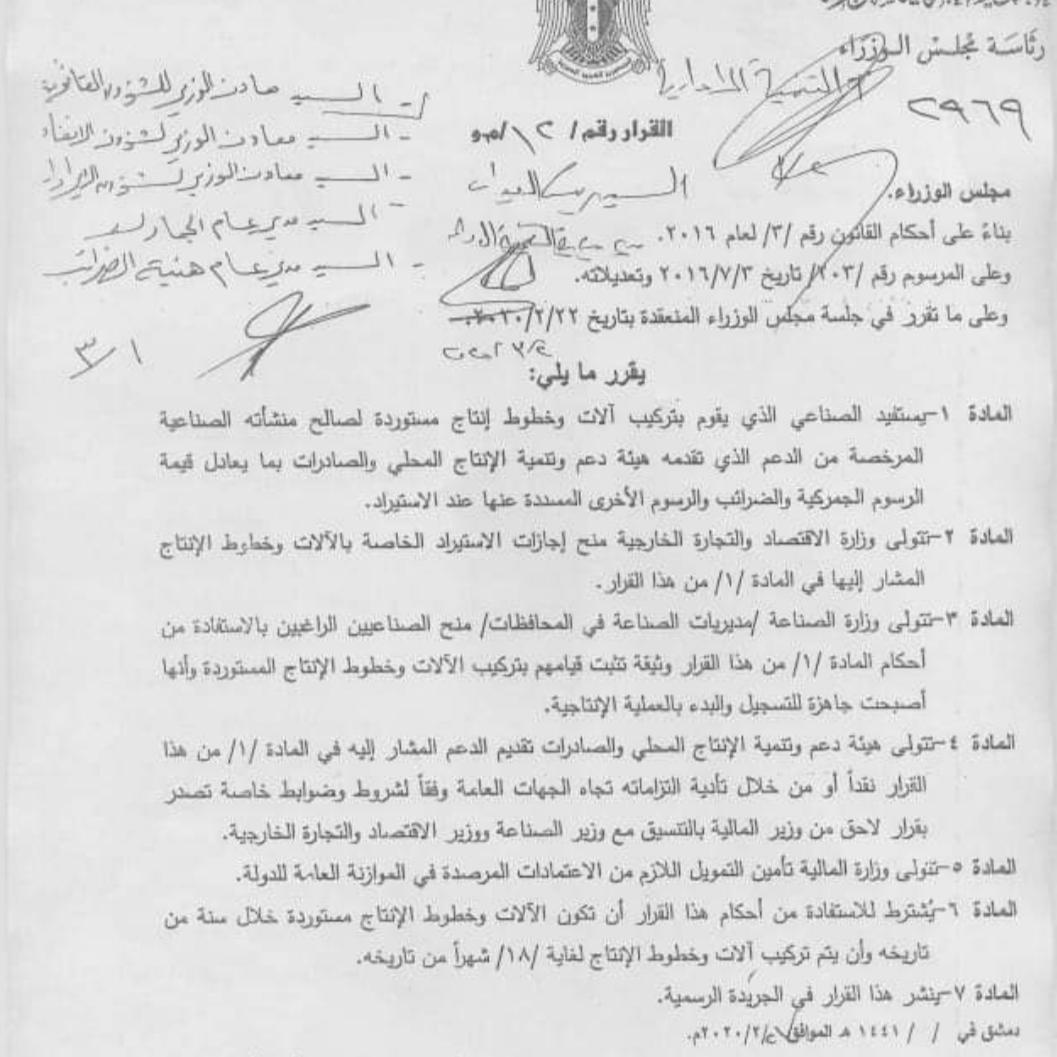 رئاسة مجلس الوزراء
٢٩٦٩
التنمية الادارية
القرار رقم / ١٢ /م.و
السيد معاون الوزير للشؤون القانونية
- السيد معاون الوزير لشؤون الانفاق
- السيد معاون الوزير لشؤون الايرادات
- السيد مدير عام الجمارك
- السيد مدير عام هيئة الضرائب
٣/١
مجلس الوزراء.
بناءً على أحكام القانون رقم /٣/ لعام ٢٠١٦.
وعلى المرسوم رقم /٢٠٣/ تاريخ ٢٠١٦/٧/٣ وتعديلاته.
وعلى ما تقرر في جلسة مجلس الوزراء المنعقدة بتاريخ ٢٠٢٠/٢/٢٢.
يقرر ما يلي:
المادة ١-يستفيد الصناعي الذي يقوم بتركيب آلات وخطوط إنتاج مستوردة لصالح منشأته الصناعية
المرخصة من الدعم الذي تقدمه هيئة دعم وتنمية الإنتاج المحلي والصادرات بما يعادل قيمة
الرسوم الجمركية والضرائب والرسوم الأخرى المسددة عنها عند الاستيراد.
المادة ٢-تتولى وزارة الاقتصاد والتجارة الخارجية منح إجازات الاستيراد الخاصة بالآلات وخطوط الإنتاج
المشار إليها في المادة /١/ من هذا القرار.
المادة ٣-تتولى وزارة الصناعة /مديريات الصناعة في المحافظات/ منح الصناعيين الراغبين بالاستفادة من
أحكام المادة /١/ من هذا القرار وثيقة تثبت قيامهم بتركيب الآلات وخطوط الإنتاج المستوردة وأنها
أصبحت جاهزة للتسجيل والبدء بالعملية الإنتاجية.
المادة ٤-تتولى هيئة دعم وتنمية الإنتاج المحلي والصادرات تقديم الدعم المشار إليه في المادة /١/ من هذا
القرار نقداً أو من خلال تأدية التزاماته تجاه الجهات العامة وفقاً لشروط وضوابط خاصة تصدر
بقرار لاحق من وزير المالية بالتنسيق مع وزير الصناعة ووزير الاقتصاد والتجارة الخارجية.
المادة ٥-تتولى وزارة المالية تأمين التمويل اللازم من الاعتمادات المرصدة في الموازنة العامة للدولة.
المادة ٦-يُشترط للاستفادة من أحكام هذا القرار أن تكون الآلات وخطوط الإنتاج مستوردة خلال سنة من
تاريخه وأن يتم تركيب آلات وخطوط الإنتاج لغاية /١٨/ شهراً من تاريخه.
المادة ٧-ينشر هذا القرار في الجريدة الرسمية.
دمشق في / / ١٤٤١ هـ الموافق /٢٠٢٠/٢م.